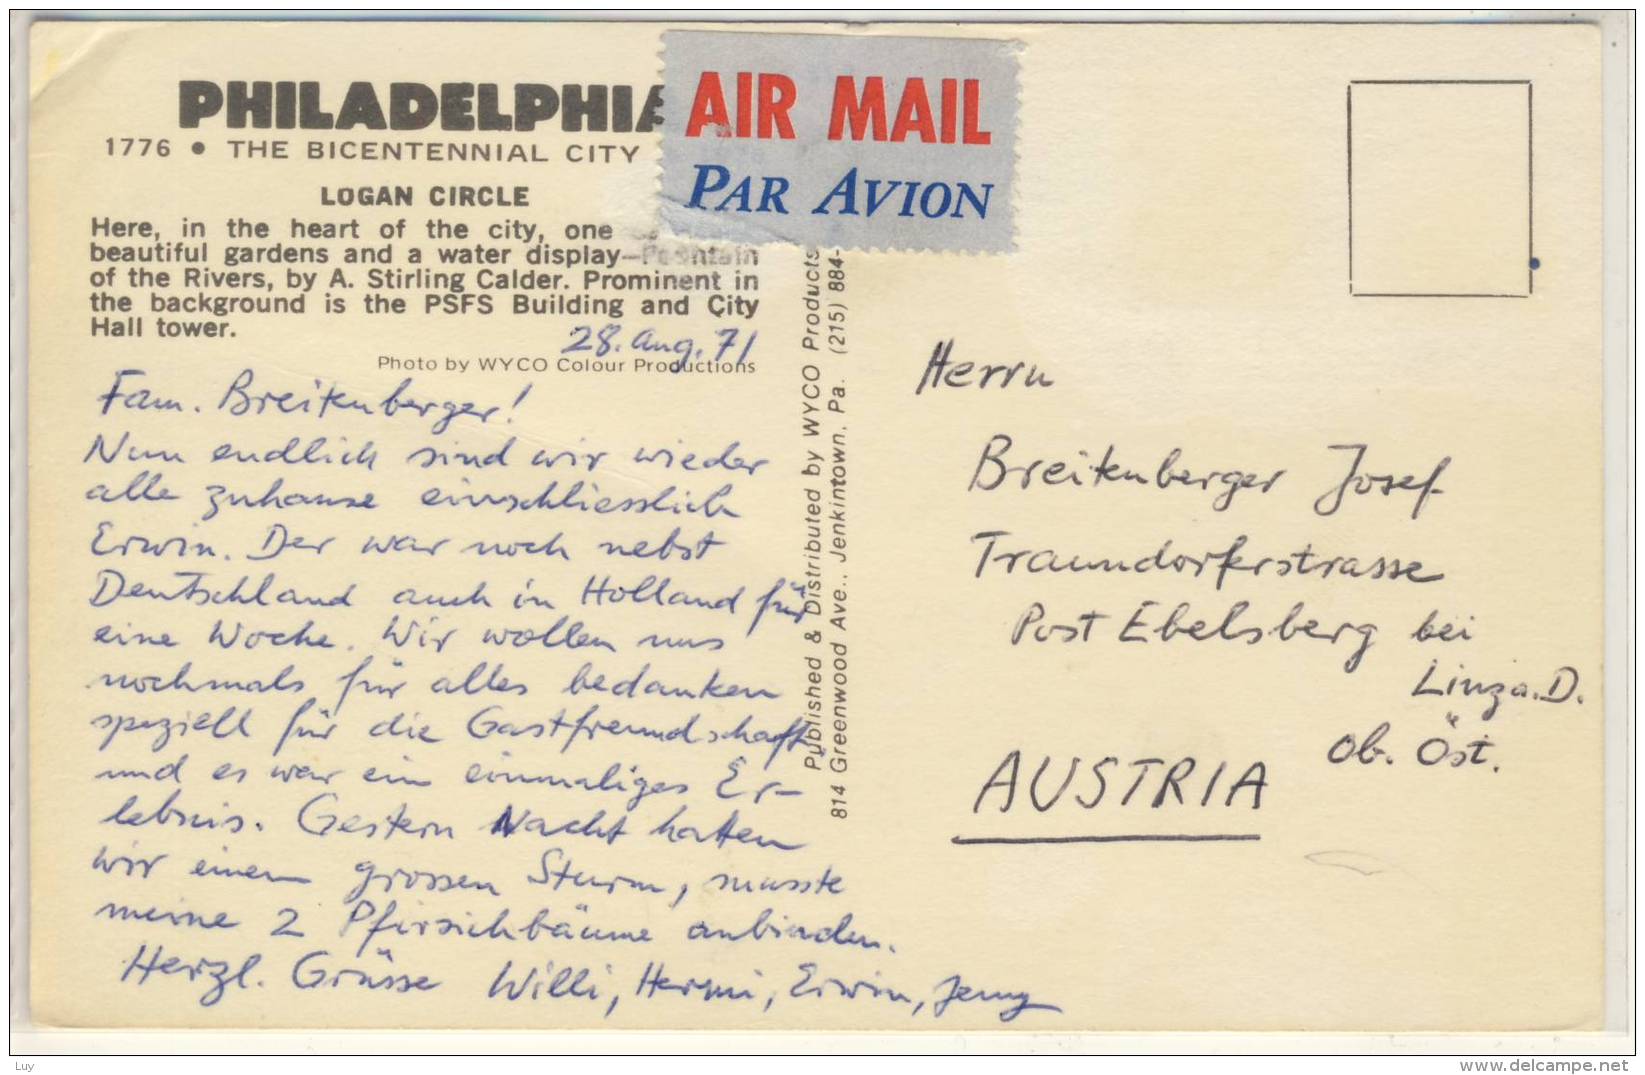 PHILADELPHIA
1776 • THE BICENTENNIAL CITY
LOGAN CIRCLE
Here, in the heart of the city, one
beautiful gardens and a water display—Fountain
of the Rivers, by A. Stirling Calder. Prominent in
the background is the PSFS Building and City
Hall tower.
Photo by WYCO Colour Productions
AIR MAIL
PAR AVION
28. Aug. 71
Fam. Breitenberger!
Nun endlich sind wir wieder
alle zuhause einschliesslich
Erwin. Der war noch nebst
Deutschland auch in Holland für
eine Woche. Wir wollen uns
nochmals für alles bedanken
speziell für die Gastfreundschaft
und es war ein einmaliges Er-
lebnis. Gestern Nacht hatten
wir einen grossen Sturm, musste
meine 2 Pfirsichbäume anbinden.
Herzl. Grüsse Willi, Hermi, Erwin, Jenny
Published & Distributed by WYCO Products
814 Greenwood Ave., Jenkintown, Pa. (215) 884-
Herrn
Breitenberger Josef
Traundorferstrasse
Post Ebelsberg bei
Linz a. D.
Ob. Öst.
AUSTRIA
Luy
www.delcampe.net